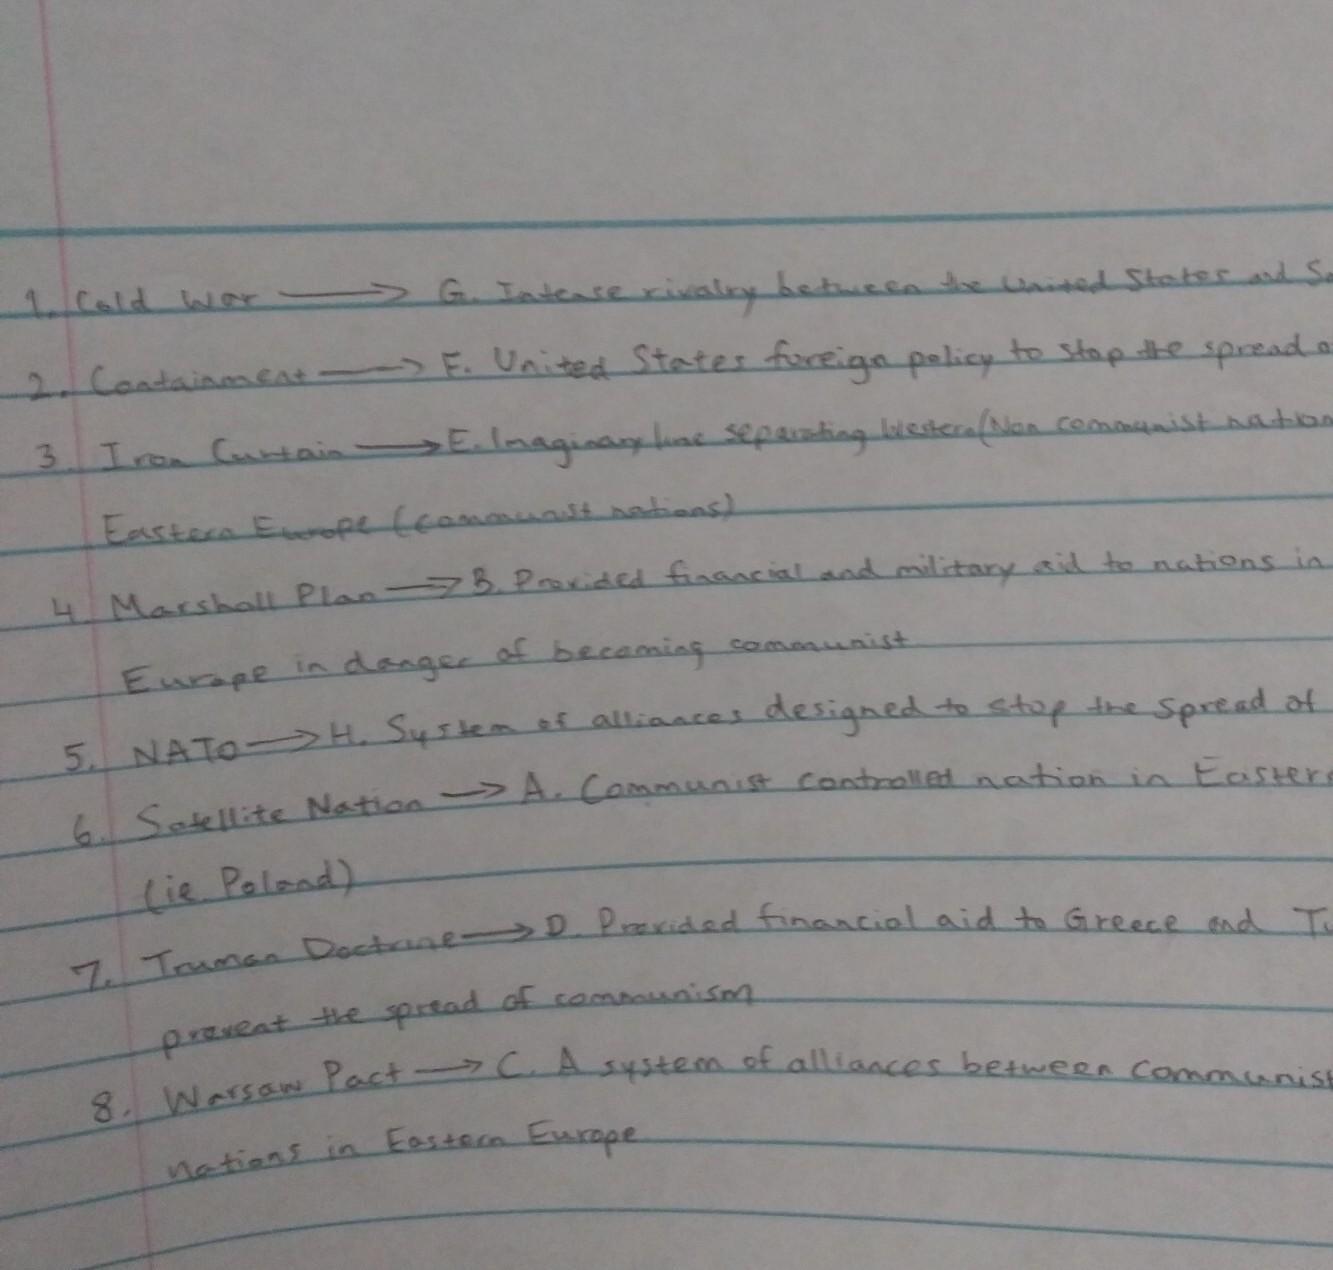 1. Cold War → G. Intense rivalry between the United States and
2. Containment → F. United States foreign policy to stop the spread
3. Iron Curtain → E. Imaginary line separating Western (Non communist nation
Eastern Europe (communist nations)
4. Marshall Plan → B. Provided financial and military aid to nations in
Europe in danger of becoming communist
5. NATO → H. System of alliances designed to stop the spread of
6. Satellite Nation → A. Communist controlled nation in Eastern
(ie. Poland)
7. Truman Doctrine → D. Provided financial aid to Greece and
prevent the spread of communism
8. Warsaw Pact → C. A system of alliances between communist
nations in Eastern Europe